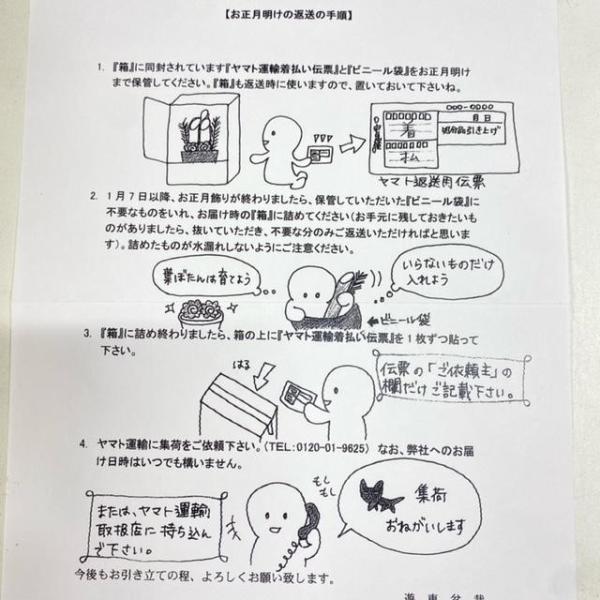 【お正月明けの返送の手順】
1. 『箱』に同封されています『ヤマト運輸着払い伝票』と『ビニール袋』をお正月明け
まで保管してください。『箱』も返送時に使いますので、置いておいて下さいね。
000-0000
月日
着
払
処分品引き上げ
ヤマト返送用伝票
2. 1月7日以降、お正月飾りが終わりましたら、保管していただいた『ビニール袋』に
不要なものをいれ、お届け時の『箱』に詰めてください(お手元に残しておきたいも
のがありましたら、抜いていただき、不要な分のみご返送いただければと思いま
す)。詰めたものが水漏れしないようにご注意ください。
葉ぼたんは育てよう
いらないものだけ
入れよう
←ビニール袋
3. 『箱』に詰め終わりましたら、箱の上に『ヤマト運輸着払い伝票』を1枚ずつ貼って
下さい。
はる
伝票の「ご依頼主」の
欄だけご記載下さい。
4. ヤマト運輸に集荷をご依頼下さい。(TEL:0120-01-9625) なお、弊社へのお届
け日時はいつでも構いません。
または、ヤマト運輸
取扱店に持ち込ん
で下さい。
もしもし
集荷
おねがいします
今後もお引き立ての程、よろしくお願い致します。